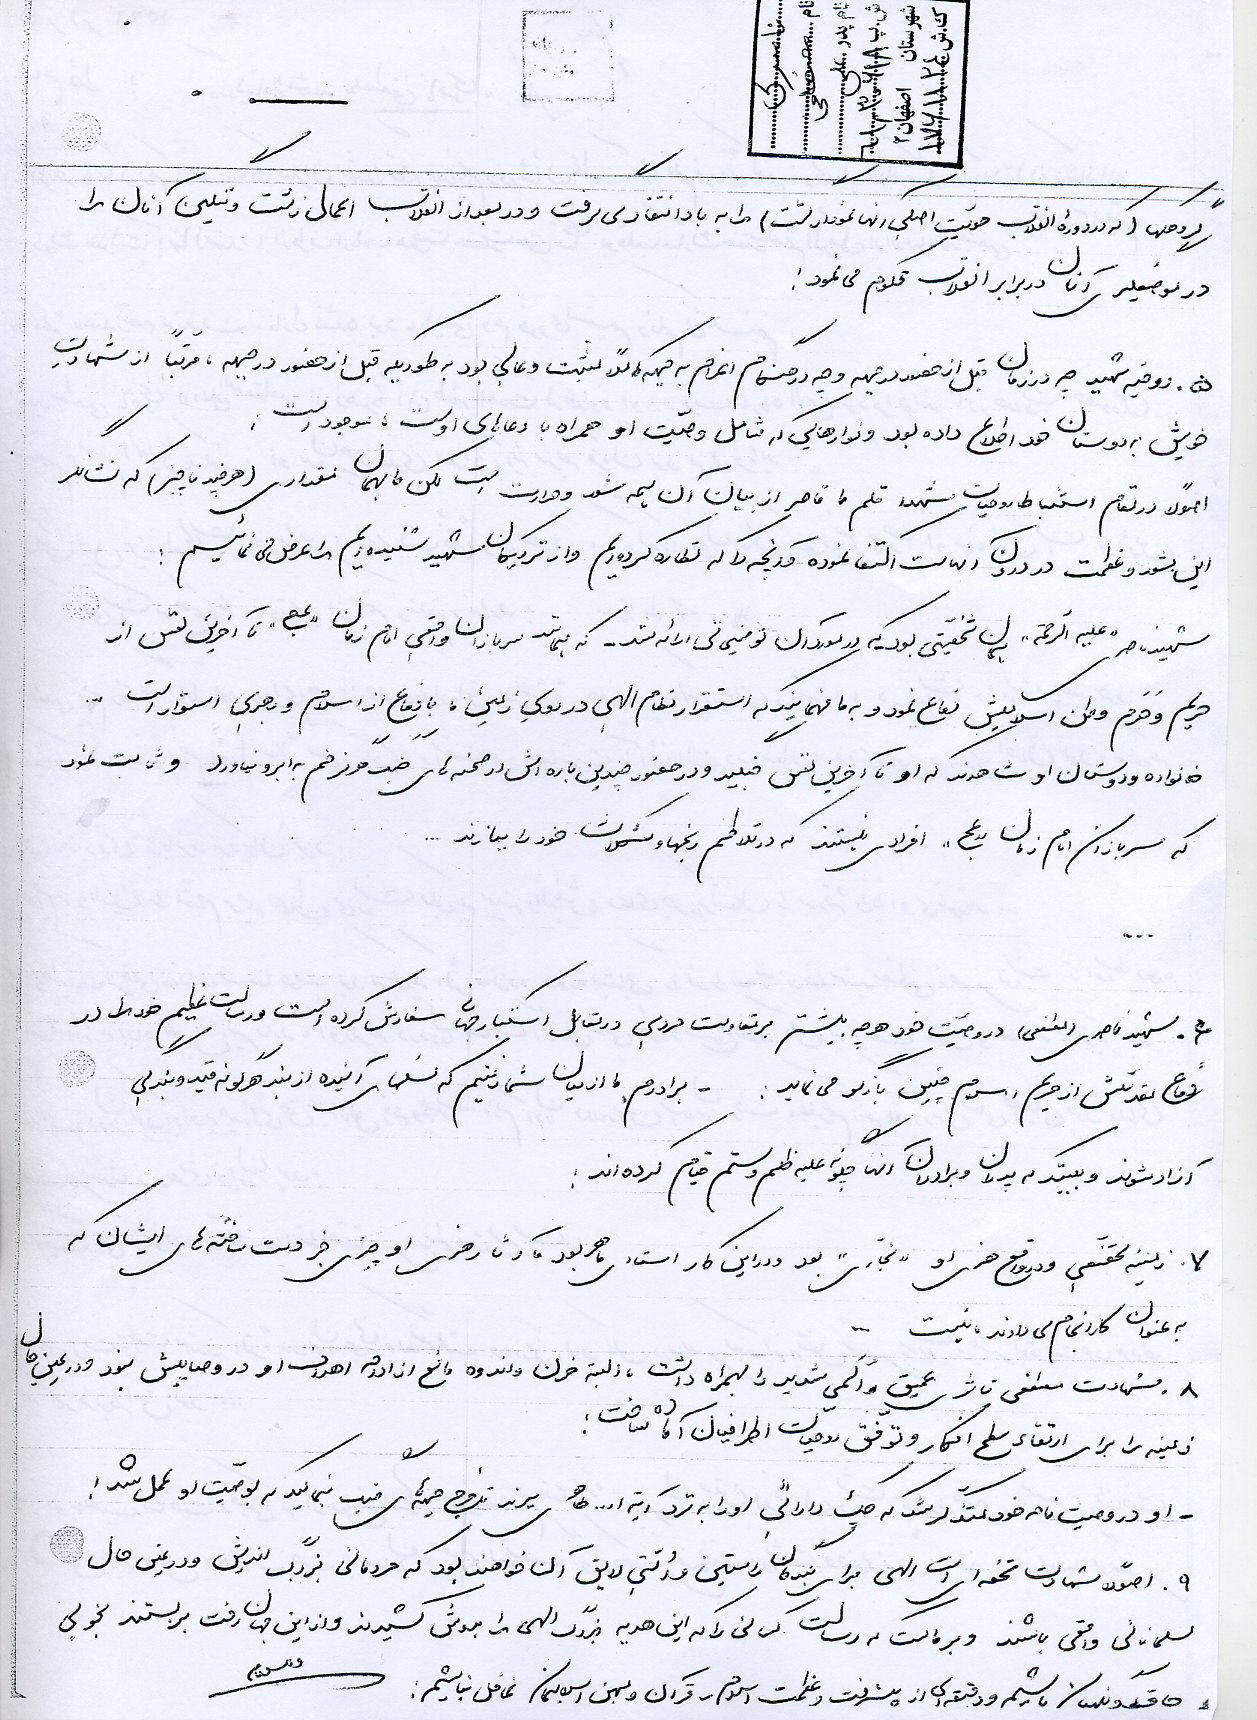 نام
نام پدر علی
شهرستان اصفهان ۲
گروهکها (که در دورهٔ انقلاب هویّتِ اصلی آنها نمودار گشت) را به باد انتقاد می گرفت و در بعد از انقلاب اعمال زشت و ننگین آنان را
در موضعگیری آنان در برابر انقلاب محکوم می نمود!
۵. روحیه شهید چه در زمان قبل از حضور در جبهه و چه در هنگام اعزام به جبهه کاملاً مثبت و عالی بود به طوریکه قبل از حضور در جبهه، مرتّباً از شهادت
خویش به دوستان خود اطلاع داده بود و نوارهایی که شامل وصیّت او همراه با دعاهای اوست، موجود است!
اصولاً در مقام استنباط روحیات شهدا قلم ما قاصر از بیان آن همه شور و حرارت است لکن ما بهمان مقداری (هر چند ناچیز) که نشانگر
این شور و عظمت در درون آنهاست اکتفا نموده و آنچه را که نظاره کرده ایم و از نزدیکان شهید شنیده ایم را عرض می نمائیم:
شهید ناصری "علیه الرحمة" همان شخصیّتی بود که در موردآن توضیحاتی ارائه شد - که همانند سربازان واقعی امام زمان "عج" تا آخرین نفس از
حریم و حَرَم وطن اسلامیش دفاع نمود و به ما فهمانید که استقرار نظام الهی در روی زمین، با دفاع از اسلام و رهبری استوار است ...
خانواده و دوستان او شاهدند که او تا آخرین نفس جنگید و در حضور چندین باره اش در صحنه های جنگ هرگز خم به ابرو نیاورد و ثابت نمود
که سربازان امام زمان "عج" افرادی نیستند که در تلاطم رنجها و مشکلات خود را ببازند ...
...
۶. شهید ناصری (مصطفی) در وصیّت خود هر چه بیشتر بر مقاومت مردمی در مقابل استکبار جهانی سفارش کرده است و رسالت عظیم خود را در
دفاع مقدّسش از حریم اسلام چنین بازگو می نماید: - برادرم ما از میان شما رفتیم که نسلهای آینده از بند هر گونه قید و بندگی
آزاد شوند و ببینند که پدران و برادران آنها چگونه علیه ظلم و ستم قیام کرده اند!
۷. زمینه تحقیقی و در واقع هنری او "نجّاری" بود و در این کار استادی ماهر بود و آثار هنری او چیزی جز دست ساخته های ایشان که
به عنوان کار انجام می دادند، نیست ...
۸. شهادت مصطفی تأثری عمیق و اَلَمی شدید را بهمراه داشت، البته حزن و اندوه مانع از ادامه اهداف او در وصایایش نبود و در عین حال
زمینه را برای ارتقای سطح افکار و توفّق روحیات اطرافیان آماده ساخت!
- او در وصیت نامه خود متذکّر شد که دارائی او را به نزد آیة ا... طاهری ببرند تا خرج جبهه های جنگ نمایند که بوصیّت او عمل شد!
۹. اصولاً شهادت تحفه ای است الهی برای بندگان راستین و اُمّتی لایق آن خواهند بود که مردمانی بزرگ اندیش و در عین حال
مسلمانانی واقعی باشند و بر ماست که رسالت کسانی را که این هدیه بزرگ الهی را بدوش کشیدند و از این جهان رخت بر بستند بخوبی
باشیم و دقیقه ای از پیشرفت و عظمت اسلام، قرآن و میهن اسلامیمان غافل نباشیم!
والسلام